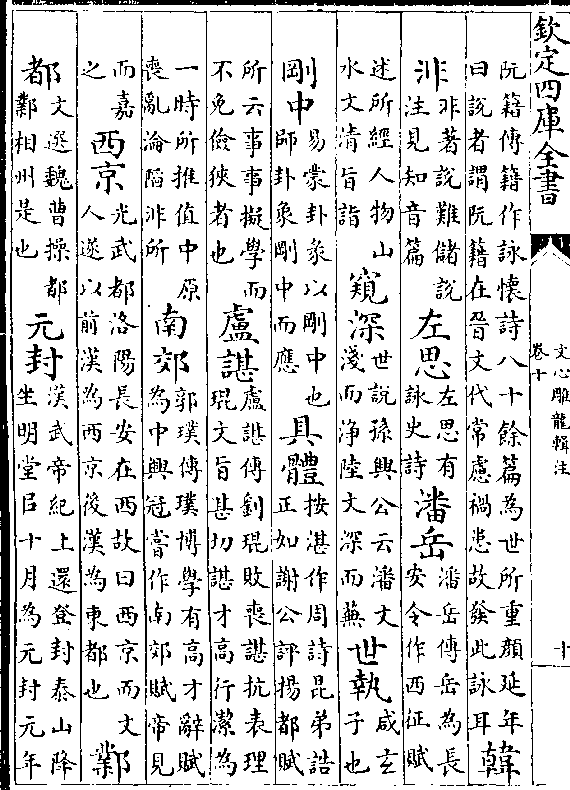 欽定四庫全書
文心雕龍輯注
卷十
十
阮籍傳籍作詠懷詩八十餘篇為世所重顏延年
曰說者謂阮籍在晉文代常慮禍患故發此詠耳
韓
非
非著說難儲說
注見知音篇
左思
左思有
詠史詩
潘岳
潘岳傳岳為長
安令作西征賦
述所經人物山
水文清旨詣
窺深
世說孫興公云潘文
淺而浄陸文深而蕪
世執
咸玄
子也
剛中
易蒙卦彖以剛中也
師卦彖剛中而應
具體
按湛作周詩昆弟誥
正如謝公評揚都賦
所云事事擬學而
不免儉狹者也
盧諶
盧諶傳劉琨敗喪諶抗表理
琨文旨甚切諶才高行潔為
一時所推值中原
喪亂淪陷非所
南郊
郭璞傳璞博學有高才辭賦
為中興冠嘗作南郊賦帝見
而嘉
之
西京
光武都洛陽長安在西故曰西京而文
人遂以前漢為西京後漢為東都也
鄴
都
文選魏曹操都
鄴相州是也
元封
漢武帝紀上還登封泰山降
生明堂㠯十月為元封元年